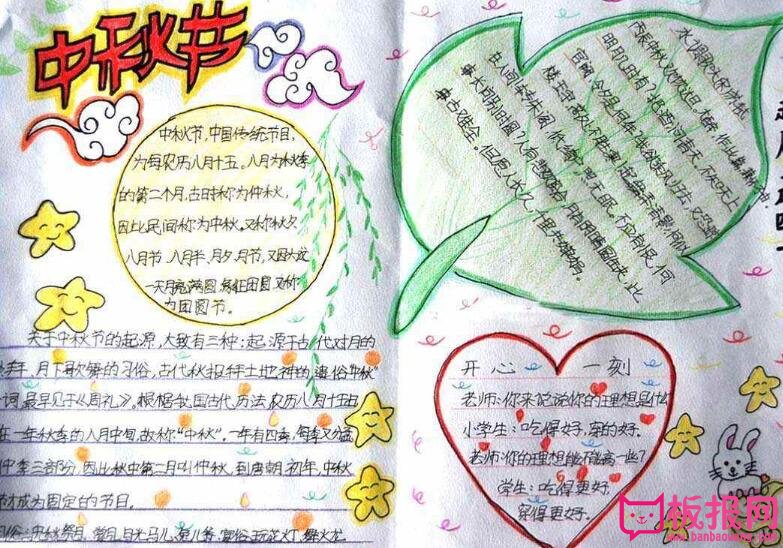 中秋节
中秋节，中国传统节目，
为每农历八月十五。八月为秋季
的第二个月，古时称为仲秋，
因此民间称为中秋。又称秋夕
八月节、八月半、月夕、月节，又因为这
一天月亮满圆，象征团圆，又称
为团圆节。
关于中秋节的起源，大致有三种：起源于古代对月的
月下歌舞的习俗，古代秋报拜土地神的遗俗"中秋"
一词，最早见于《周礼》。根据我国古代历法，农历八月十五日
在一年秋季的八月中旬，故称"中秋"。一年有四季，每季又分孟
仲季三部分，因此秋中第二月叫仲秋，到唐朝初年，中秋
成为固定的节日。
中秋祭月、赏月、月光马儿、兔儿爷、宴俗、玩花灯、舞火龙
水调歌头
丙辰中秋，欢饮达旦，大醉，作此篇
明月几时有？把酒问青天。不知天上
宫阙，今夕是何年？我欲乘风归去，又恐
琼楼玉宇，高处不胜寒。起舞弄清影，何似
在人间！转朱阁，低绮户，照无眠。不应有恨，何
事长向别时圆？人有悲欢离合，月有阴晴圆缺，此
事古难全。但愿人长久，千里共婵娟。
开心一刻
老师：你来说说你的理想是什
小学生：吃得好，穿的好。
老师：你的理想能不能高一些？
学生：吃得更好，
穿得更好。
板报网
www.banbaowang.com